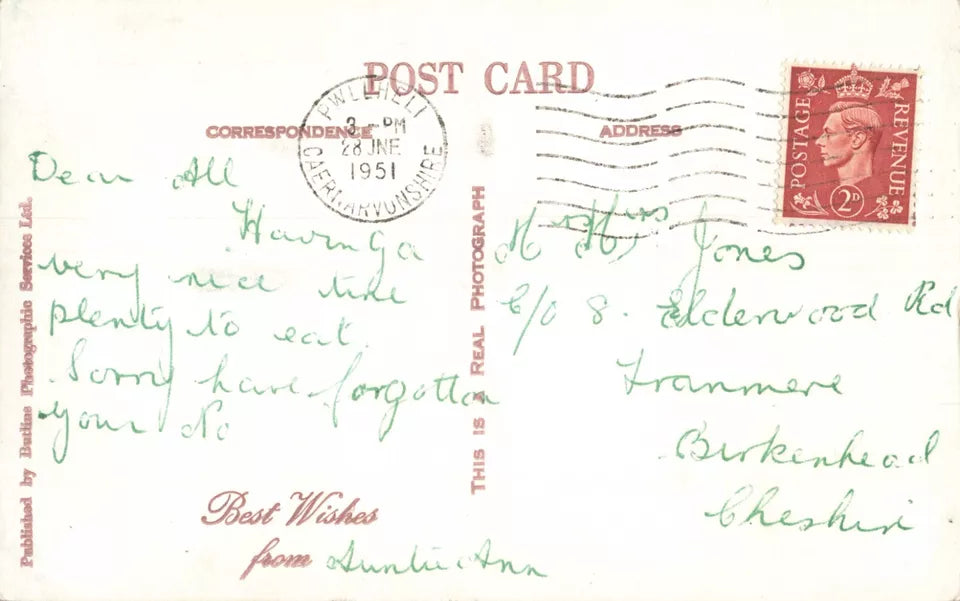 POST CARD
CORRESPONDENCE
ADDRESS
PWLLHELI
3 - PM
28 JNE
1951
CAERNARVONSHIRE
POSTAGE
REVENUE
2D
Dear All
Having a
very nice time
plenty to eat.
Sorry have forgotten
your No
Best Wishes
from Auntie Ann
Published by Butlins Photographic Services Ltd.
THIS IS A REAL PHOTOGRAPH
Jones
C/o 8. Elderwood Rd
Tranmere
Birkenhead
Cheshire